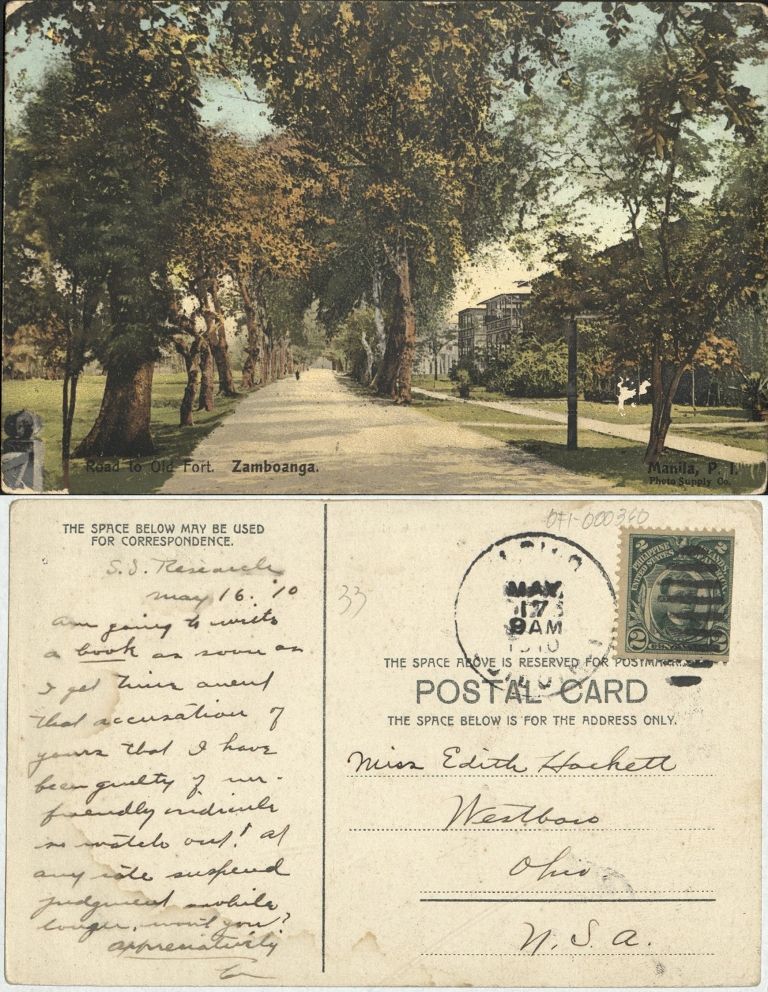 Road to Old Fort. Zamboanga.
Manila, P. I.
Photo Supply Co.
THE SPACE BELOW MAY BE USED
FOR CORRESPONDENCE.
S. S. Research
May 16. '10
Am going to write
a book as soon as
I get time anent
that accusation of
yours that I have
been guilty of un-
friendly ridicule
so watch out! At
any rate suspend
judgment awhile
longer, won't you?
Appreciatively
071-000360
33
MAY
17
9 AM
1910
PHILIPPINE ISLANDS
UNITED STATES
2 2
2 CENTAVOS 2
THE SPACE ABOVE IS RESERVED FOR POSTMARK.
POSTAL CARD
THE SPACE BELOW IS FOR THE ADDRESS ONLY.
Miss Edith Hackett
Westboro
Ohio
U. S. A.